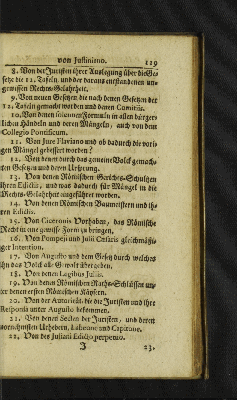 von Justiniano. 119
8. Von der Juristen ihrer Auslegung über die Ge-
setze die 12. Tafeln, und der daraus entstandenen un-
gewissen Rechts-Gelahrheit.
9. Von neuen Gesetzen die nach denen Gesetzen der
12. Tafeln gemacht worden und denen Comitiis.
10. Von denen Formuln in allen bürger-
lichen Händeln und deren Mängeln, auch von dem
Collegio Pontificum.
11. Von Jure Flaviano und ob dadurch die vori-
gen Mängel gebessert worden?
12. Von denen durch das gemeine Volck gemach-
ten Gesetzen und deren Uhrsprung.
13. Von denen Römischen Gerichts-Schultzen
ihren Edictis, und was dadurch für Mängel in die
Rechts-Gelahrheit eingeführet worden.
14. Von denen Römischen Baumeistern und ih-
ren Edictis.
15. Von Ciceronis Vorhaben, das Römische
Recht in eine gewisse Form zu bringen.
16. Von Pompeji und Julii Cæsaris gleichmäßi-
ger Intention.
17. Von Augusto und dem Gesetz durch welches
ihn das Volck alle Gewalt übergeben.
18. Von denen Legibus Juliis.
19. Von denen Römischen Raths-Schlüssen un-
ter denen ersten Römischen Käysern.
20. Von der Autorität, die die Juristen und ihre
Responsa unter Augusto bekommen.
21. Von denen Secten der Juristen, und deren
vornehmsten Urhebern, Labeone und Capitone.
22. Von des Juliani Edicto perpetuo.
J 23.